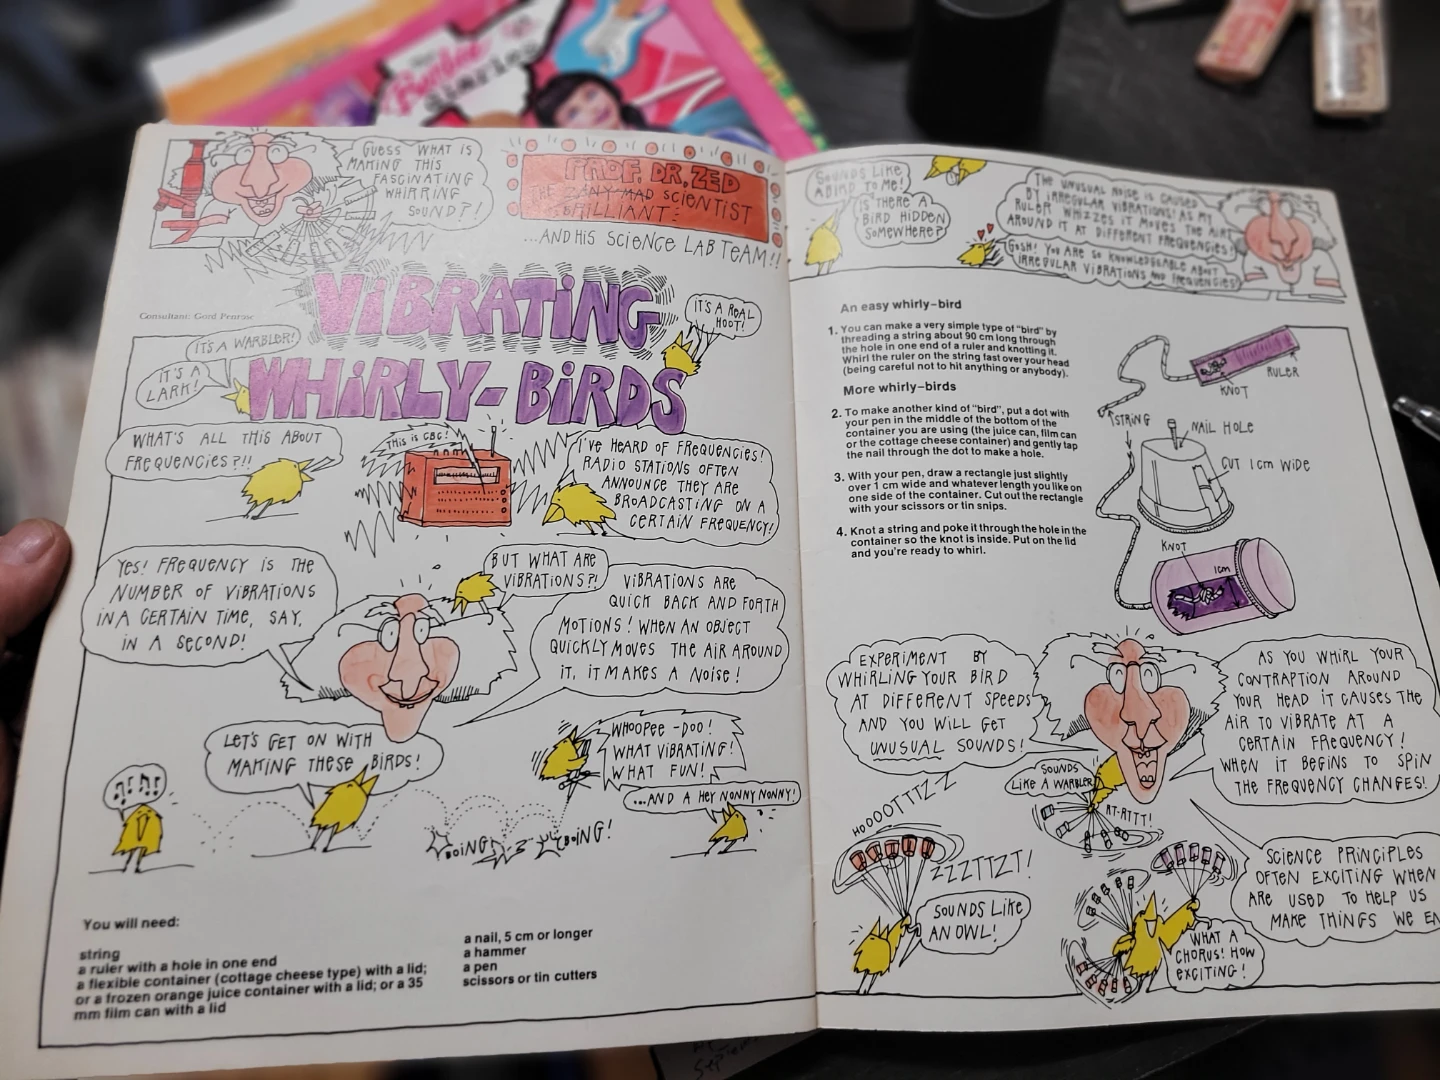 Barbie
GUESS WHAT IS
MAKING THIS
FASCINATING
WHIRRING
SOUND?!
PROF. DR. ZED
THE ZANY MAD SCIENTIST
BRILLIANT
...AND HIS SCIENCE LAB TEAM!!
VIBRATING
WHIRLY-BIRDS
Consultant: Gord Penrose
IT'S A WARBLER!
IT'S A
LARK!
IT'S A REAL
HOOT!
WHAT'S ALL THIS ABOUT
FREQUENCIES?!!
THIS IS CBC!
I'VE HEARD OF FREQUENCIES!
RADIO STATIONS OFTEN
ANNOUNCE THEY ARE
BROADCASTING ON A
CERTAIN FREQUENCY!
YES! FREQUENCY IS THE
NUMBER OF VIBRATIONS
IN A CERTAIN TIME, SAY,
IN A SECOND!
BUT WHAT ARE
VIBRATIONS?!
VIBRATIONS ARE
QUICK BACK AND FORTH
MOTIONS! WHEN AN OBJECT
QUICKLY MOVES THE AIR AROUND
IT, IT MAKES A NOISE!
LET'S GET ON WITH
MAKING THESE BIRDS!
WHOOPEE-DOO!
WHAT VIBRATING!
WHAT FUN!
...AND A HEY NONNY NONNY!
BOING!
BOING!
You will need:
string
a ruler with a hole in one end
a flexible container (cottage cheese type) with a lid;
or a frozen orange juice container with a lid; or a 35
mm film can with a lid
a nail, 5 cm or longer
a hammer
a pen
scissors or tin cutters
SOUNDS LIKE
A BIRD TO ME!
IS THERE A
BIRD HIDDEN
SOMEWHERE?
THE UNUSUAL NOISE IS CAUSED
BY IRREGULAR VIBRATIONS! AS MY
RULER WHIZZES IT MOVES THE AIR
AROUND IT AT DIFFERENT FREQUENCIES!
GOSH! YOU ARE SO KNOWLEDGEABLE ABOUT
IRREGULAR VIBRATIONS AND FREQUENCIES!
An easy whirly-bird
1. You can make a very simple type of "bird" by
threading a string about 90 cm long through
the hole in one end of a ruler and knotting it.
Whirl the ruler on the string fast over your head
(being careful not to hit anything or anybody).
More whirly-birds
2. To make another kind of "bird", put a dot with
your pen in the middle of the bottom of the
container you are using (the juice can, film can
or the cottage cheese container) and gently tap
the nail through the dot to make a hole.
3. With your pen, draw a rectangle just slightly
over 1 cm wide and whatever length you like on
one side of the container. Cut out the rectangle
with your scissors or tin snips.
4. Knot a string and poke it through the hole in the
container so the knot is inside. Put on the lid
and you're ready to whirl.
RULER
KNOT
STRING
NAIL HOLE
CUT 1CM WIDE
KNOT
1CM
EXPERIMENT BY
WHIRLING YOUR BIRD
AT DIFFERENT SPEEDS
AND YOU WILL GET
UNUSUAL SOUNDS!
AS YOU WHIRL YOUR
CONTRAPTION AROUND
YOUR HEAD IT CAUSES THE
AIR TO VIBRATE AT A
CERTAIN FREQUENCY!
WHEN IT BEGINS TO SPIN
THE FREQUENCY CHANGES!
SOUNDS
LIKE A WARBLER
RT-RTTT!
HOOOTTTZ-Z
ZZZTTZT!
SOUNDS LIKE
AN OWL!
SCIENCE PRINCIPLES
OFTEN EXCITING WHEN
ARE USED TO HELP US
MAKE THINGS WE EN
WHAT A
CHORUS! HOW
EXCITING!